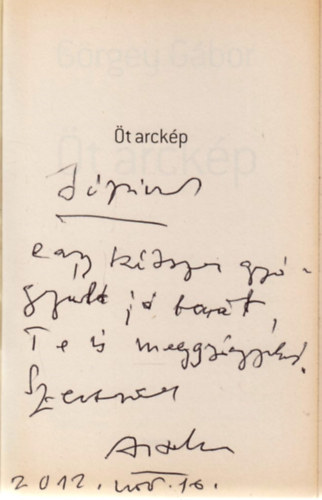 Görgey Gábor
Öt arckép
Öt arckép
egy kétszer gyó-
gyult jó barát,
Te is meggyógyulsz.
Szeretettel
2012. nov. 10.